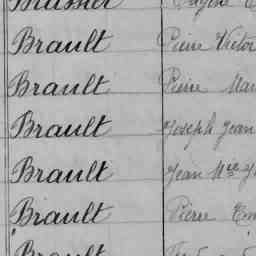 Brault Pierre Victor
Brault Pierre
Brault Joseph Jean
Brault Jean
Brault Pierre
Brault